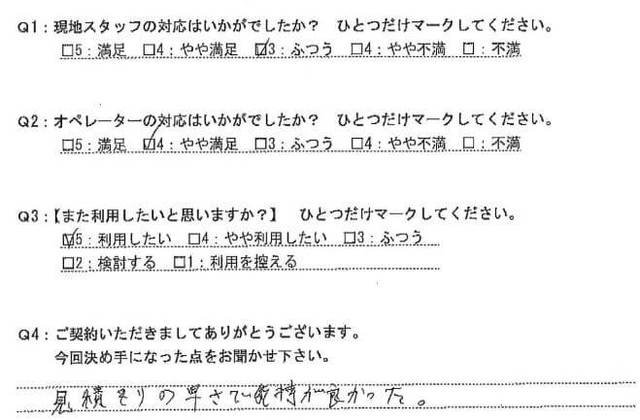 Q1：現地スタッフの対応はいかがでしたか？　ひとつだけマークしてください。
□5：満足　□4：やや満足　☑3：ふつう　□4：やや不満　□：不満
Q2：オペレーターの対応はいかがでしたか？　ひとつだけマークしてください。
□5：満足　☑4：やや満足　□3：ふつう　□4：やや不満　□：不満
Q3：【また利用したいと思いますか？】　ひとつだけマークしてください。
☑5：利用したい　□4：やや利用したい　□3：ふつう
□2：検討する　□1：利用を控える
Q4：ご契約いただきましてありがとうございます。
今回決め手になった点をお聞かせ下さい。
見積もりの早さで 気持が良かった。